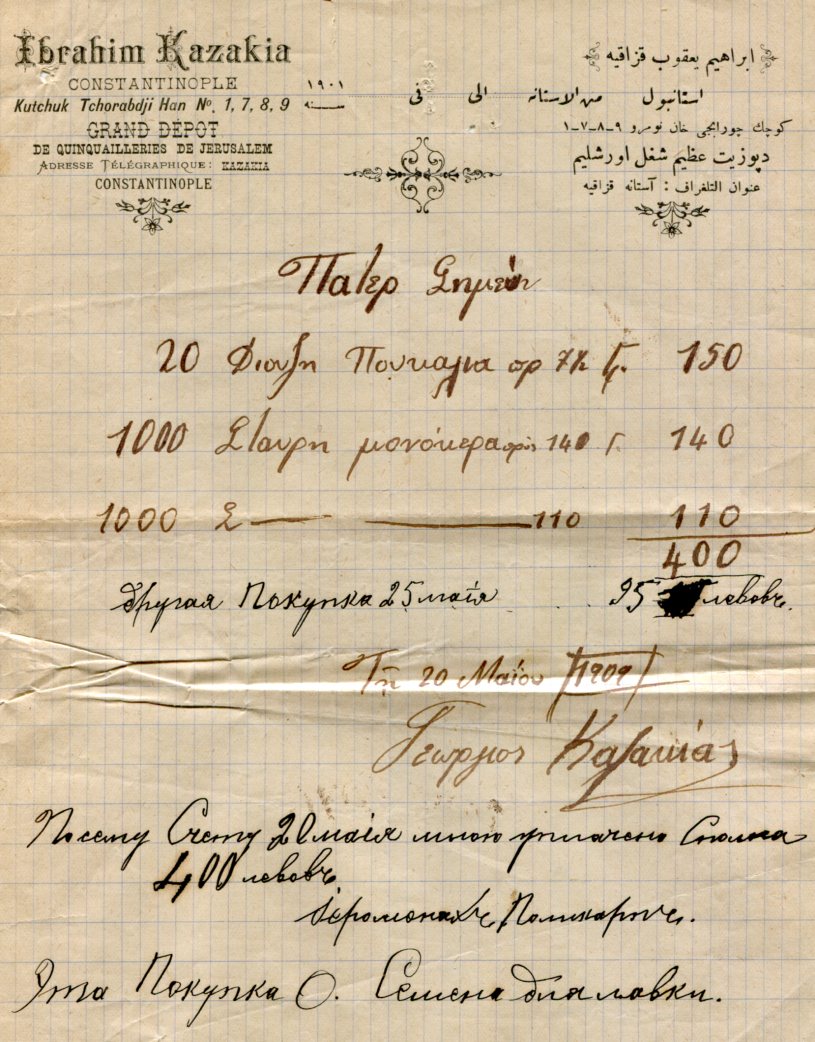 Ibrahim Kazakia
CONSTANTINOPLE
Kutchuk Tchorabdji Han Nº. 1, 7, 8, 9
GRAND DÉPOT
DE QUINQUAILLERIES DE JERUSALEM
ADRESSE TÉLÉGRAPHIQUE: KAZAKIA
CONSTANTINOPLE
ابراهيم يعقوب قزاقيه
استانبول من الاستانه الى فى سنه ١٩٠١
كوچك چورابجى خان نومرو ٩-٨-٧-١
دپوزيت عظيم شغل اورشليم
عنوان التلغراف : آستانه قزاقيه
Πατερ Σημεών
20 Πουκαλια πρ 7½ Γ. 150
1000 Σταυρη μονόκερα 140 Γ. 140
1000 Σ — — 110 110
400
другая Покупка 25 маія 95 левовъ.
Τῇ 20 Μαίου 1909
Γεώργιος Καζακίας
По сему Счету 20 маія мною уплачено Сполна
400 левовъ
Іеромонахъ Поликарпъ.
Эта Покупка О. Семена для лавки.